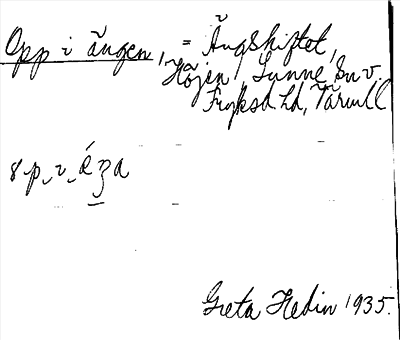 Opp i ängen, = Ängskiftet,
Höjen, Sunne sn v.
Fryksd. hd, Värml
Greta Hedin 1935.